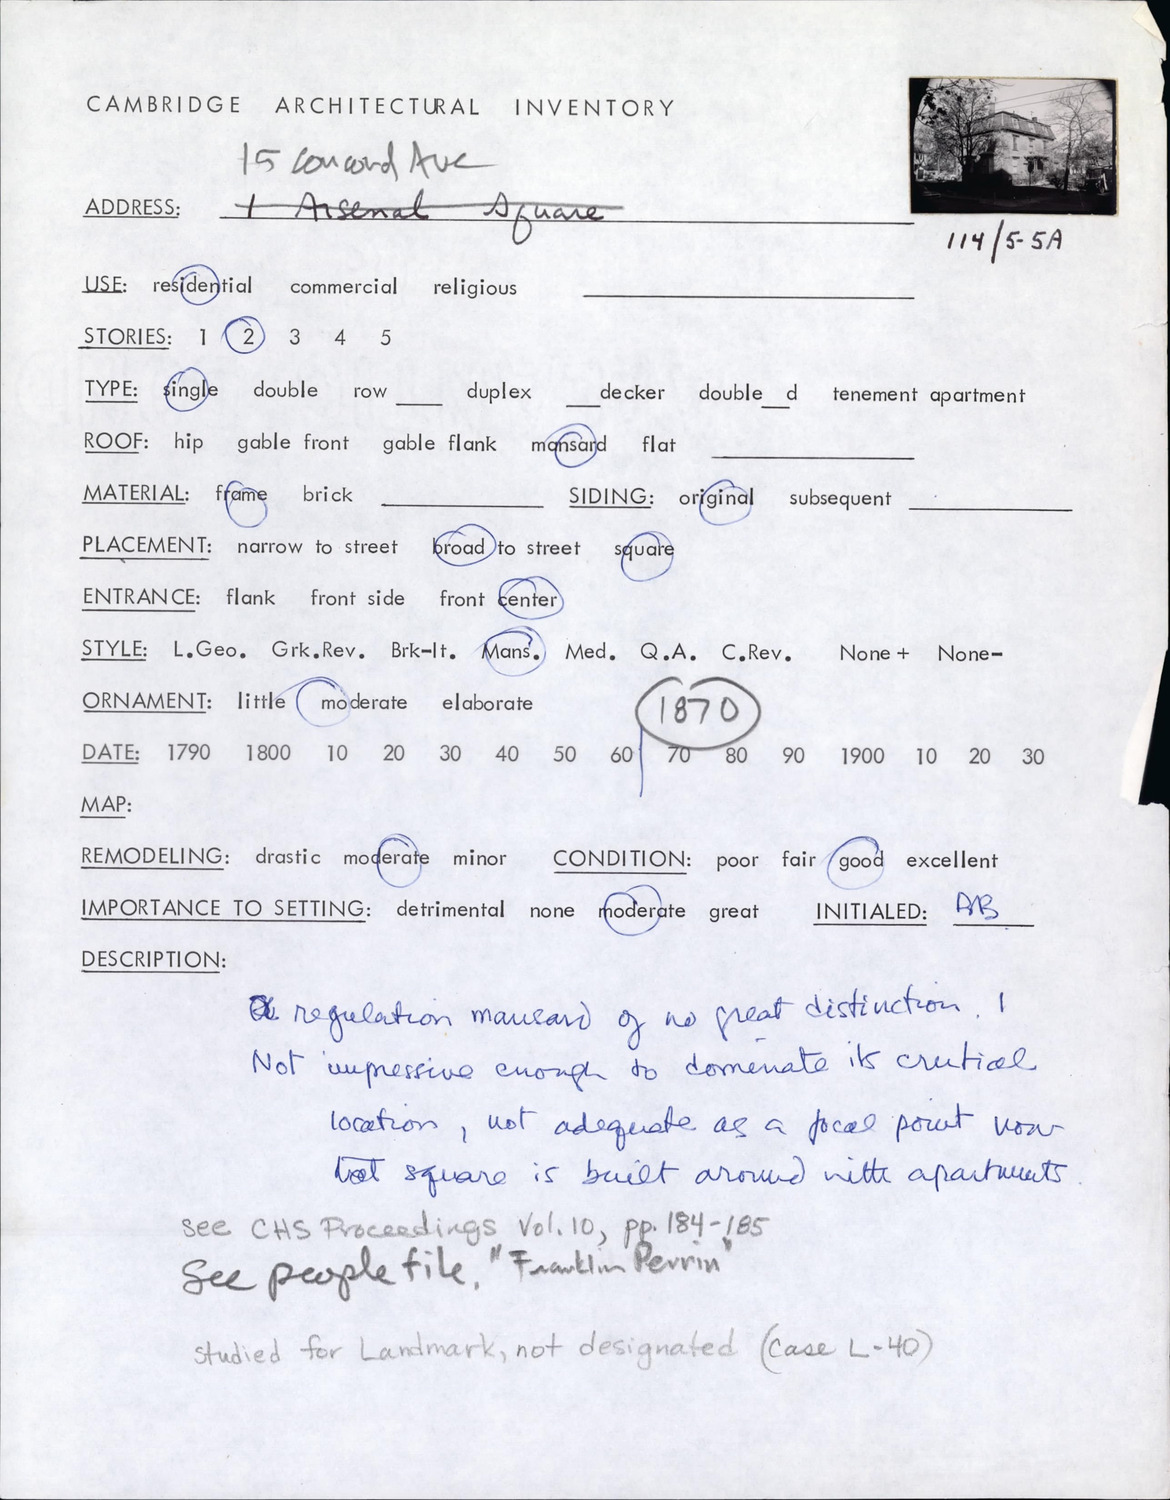 CAMBRIDGE ARCHITECTURAL INVENTORY
15 Concord Ave
ADDRESS: 1 Arsenal Square
114/5-5A
USE: residential commercial religious
STORIES: 1 2 3 4 5
TYPE: single double row ___ duplex ___decker double__d tenement apartment
ROOF: hip gable front gable flank mansard flat
MATERIAL: frame brick ___ SIDING: original subsequent ___
PLACEMENT: narrow to street broad to street square
ENTRANCE: flank front side front center
STYLE: L.Geo. Grk.Rev. Brk-It. Mans. Med. Q.A. C.Rev. None+ None-
ORNAMENT: little moderate elaborate
1870
DATE: 1790 1800 10 20 30 40 50 60 70 80 90 1900 10 20 30
MAP:
REMODELING: drastic moderate minor CONDITION: poor fair good excellent
IMPORTANCE TO SETTING: detrimental none moderate great INITIALED: AB
DESCRIPTION:
a regulation mansard of no great distinction.
Not impressive enough to domenate its crutical
location, not adequate as a focal point now
that square is built around with apartments.
see CHS Proceedings Vol. 10, pp. 184-185
See people file, "Franklin Perrin"
studied for Landmark, not designated (Case L-40)